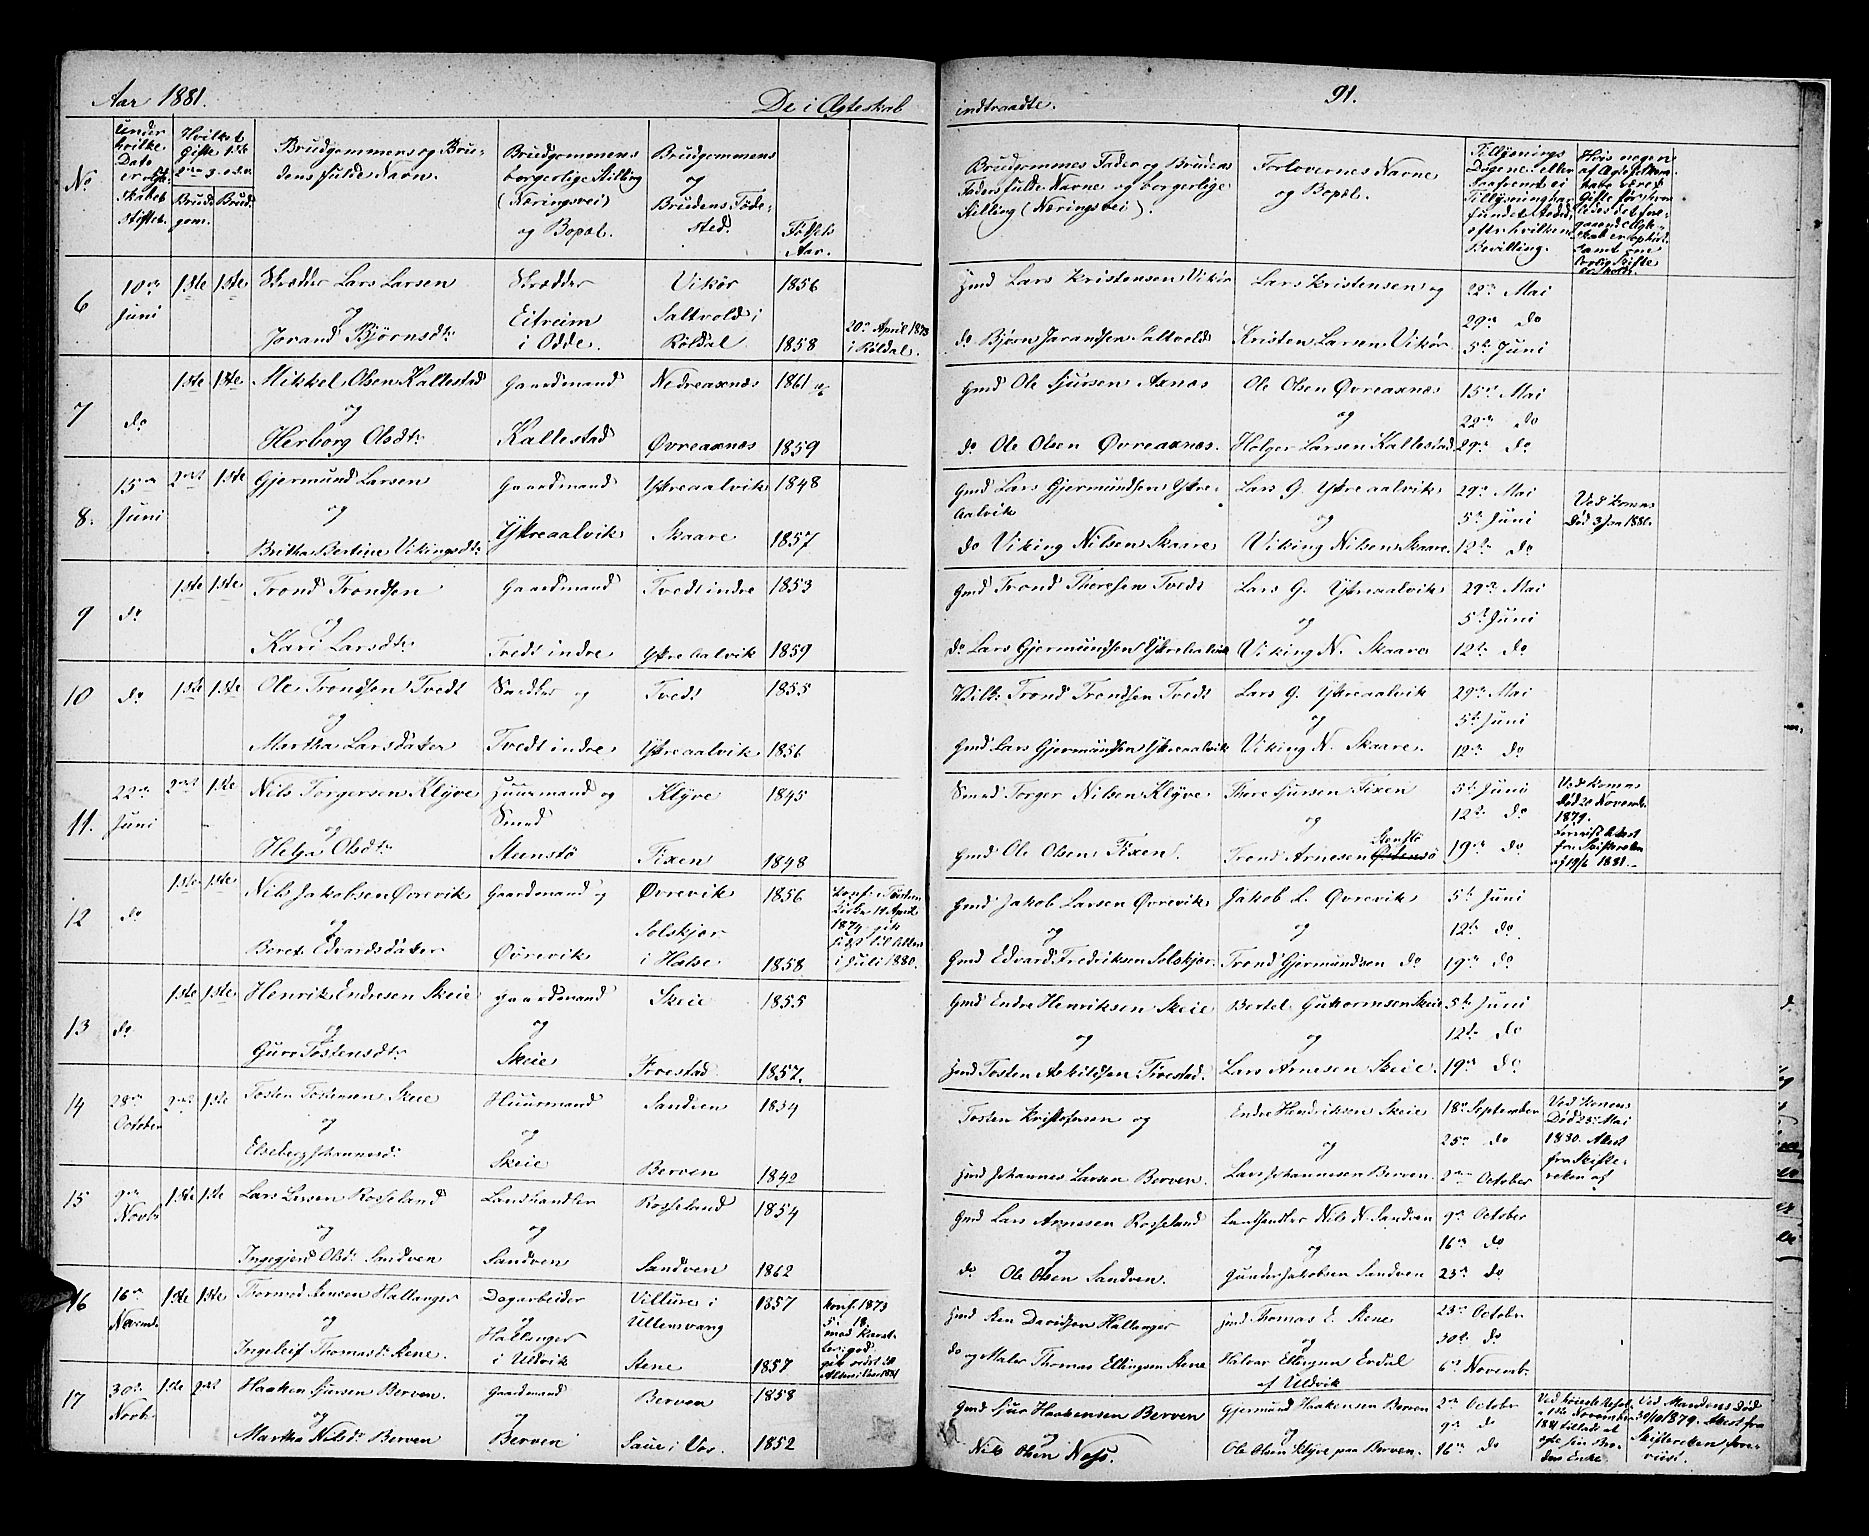 Aar 1881.
De i Ægteskab
indtraadte.
91.
No
Under hvilke Dato er Ægteskabet stiftet.
Hvilket Gifte 1ste 2den 3. o.s.v.
Brudgom.
Brud.
Brudgommens og Brudens fulde Navn.
Brudgommens borgerlige Stilling (Næringsvei) og Bopæl.
Brudgommens og Brudens Fødested.
Fødsels Aar.
Brudgommes Fader og Brudens Faders fulde Navne og borgerlige Stilling (Næringsvei).
Forlovernes Navne og Bopæl.
6
10de Juni
1ste
1ste
Skrædder Lars Larsen
og
Jorand Bjørnsdt.
Skrædder
Eitreim
i Odde.
Vikør
Saltvold i
Røldal
1856
1858
20de April 1873
i Røldal.
Gmd Lars Kristensen Vikør
do Bjørn Jarandsen Saltvold
Lars Kristensen og
Kristen Larsen Vikør
22de Mai
29de do
5te Juni
7
do
1ste
1ste
Mikkel Olsen Kallestad
og
Herborg Olsdt.
Gaardmand
Kallestad
Nedreaxnes
Øvreaxnes
1861
1859
Gmd Ole Sjursen Axnes
do Ole Olsen Øvreaxnes.
Ole Olsen Øvreaxnes
og
Holger Larsen Kallestad
15de Mai
22de do
29de do
8.
15de Juni
2det
1ste
Gjermund Larsen
og
Britha Bertine Vikingsdt.
Gaardmand
Ytreaalvik
Ytreaalvik
Skaare
1848
1857
Gmd Lars Gjermundsen Ytre-
Aalvik
do Viking Nilsen Skaare
Lars G. Ytreaalvik
og
Viking Nilsen Skaare
29de Mai
5te Juni
12te do
Ved Konens
Død 3 Jan 1880.
9
do
1ste
1ste
Trond Trondsen
og
Kari Larsdt.
Gaardmand
Tvedt indre
Tvedt indre
Ytre Aalvik
1853
1859
Gmd Trond Thoresen Tvedt
do Lars Gjermundsen Ytreaalvik
Lars G. Ytreaalvik
og
Viking N. Skaare
29de Mai
5te Juni
12te do
10
do
1ste
1ste
Ole Trondsen Tvedt
og
Martha Larsdatter
Snedker og
Tvedt indre
Tvedt
Ytreaalvik
1855
1856
Trond Trondsen Tvedt
Gmd Lars Gjermundsen Ytreaalvik
Lars G. Ytreaalvik
og
Viking N. Skaare.
29de Mai
5te Juni
12te do
11.
22de Juni
2det
1ste
Nils Torgersen Kløve
og
Helga Olsdt.
Huusmand og
Smed
Steinstø
Kløve
Fixen
1845
1848
Smed Torger Nilsen Kløve
Gmd Ole Olsen Fixen.
Thore Sjursen Fixen
og
Trond Arnesen
5te Juni
12te do
19de do
Ved Konens
Død 20 Novemb.
1879.
Forevist Attest
fra Skifteretten
af 19/6 1881.
12
do
1ste
1ste
Nils Jakobsen Øvrevik
og
Beret Edvardsdatter
Gaardmand og
Øvrevik
Øvrevik
Solskjær
i Halse
1856
1858
i Juli 1880.
Gmd Jakob Larsen Øvrevik
og
Gmd Edvard Fredriksen Solskjær.
Jakob L. Øvrevik
og
Trond Gjermundsen do
5te Juni
12te do
19de do
13
do
1ste
1ste
Henrik Endresen Skeie
og
Guro Tostensdt.
Gaardmand
og
Skeie
Skeie
Fivestad
1855
1857.
Gmd Endre Henriksen Skeie
og
Gmd Tosten Askildsen Fivestad.
Bertel Guttormsen Skeie
og
Lars Arnesen Skeie.
5te Juni
12te do
19de do
14
28de
October
2det
1ste
Tosten Tostensen Skeie
og
Elseberg Johannesdt.
Huusmand
og
Skeie
Sandven
Berven
1834
1842
Tosten Kristofersen og
Gmd Johannes Larsen Berven.
Endre Henriksen Skeie
og
Lars Johannesen Berven.
18de September
25de do
2den October
Ved Konens
Død 25de Mai
1880. Attest
fra Skifte-
retten af
15
9de
Novb.
1ste
1ste
Lars Larsen Rosseland
og
Ingegjerd Olsdt. Sandven
Landhandler
og
Sandven
Rosseland
Sandven
1854
1862
Gmd Lars Arnesen Rosseland
og
do Ole Olsen Sandven.
Landhandler Nils N. Sandven
og
Gunder Jakobsen Sandven
9de October
16de do
23de do
16
16de
Novemb.
1ste
1ste
Tormod Stensen Hallanger
og
Ingeleif Thomasdt. Stene.
Dagarbeider
og
Hallanger
i Uldvik
Villure i
Ullensvang
Stene
1857
1857
Konf. 1873
Gmd Sten Davidsen Hallanger
do og Maler Thomas Ellingsen Stene
Gmd Thomas E. Stene
og
Halvar Ellingsen Erdal
af Uldvik
23de October
30te do
6te Novemb.
17
30te
Novb.
1ste
2det
Haaken Sjursen Berven.
og
Martha Nilsdt. Berven
Gaardmand
og
Berven
Berven
Saue i Vos.
1858
1852
Gmd Sjur Haakensen Berven
og
Nils Olsen Næss.
Gjermund Haakensen Berven
og
Ole Olsen Kløve paa Berven.
2den October
9de do
16de do
Ved Mandens Død
30/10 1879. Attest fra
Skifteretten fore-
vist.